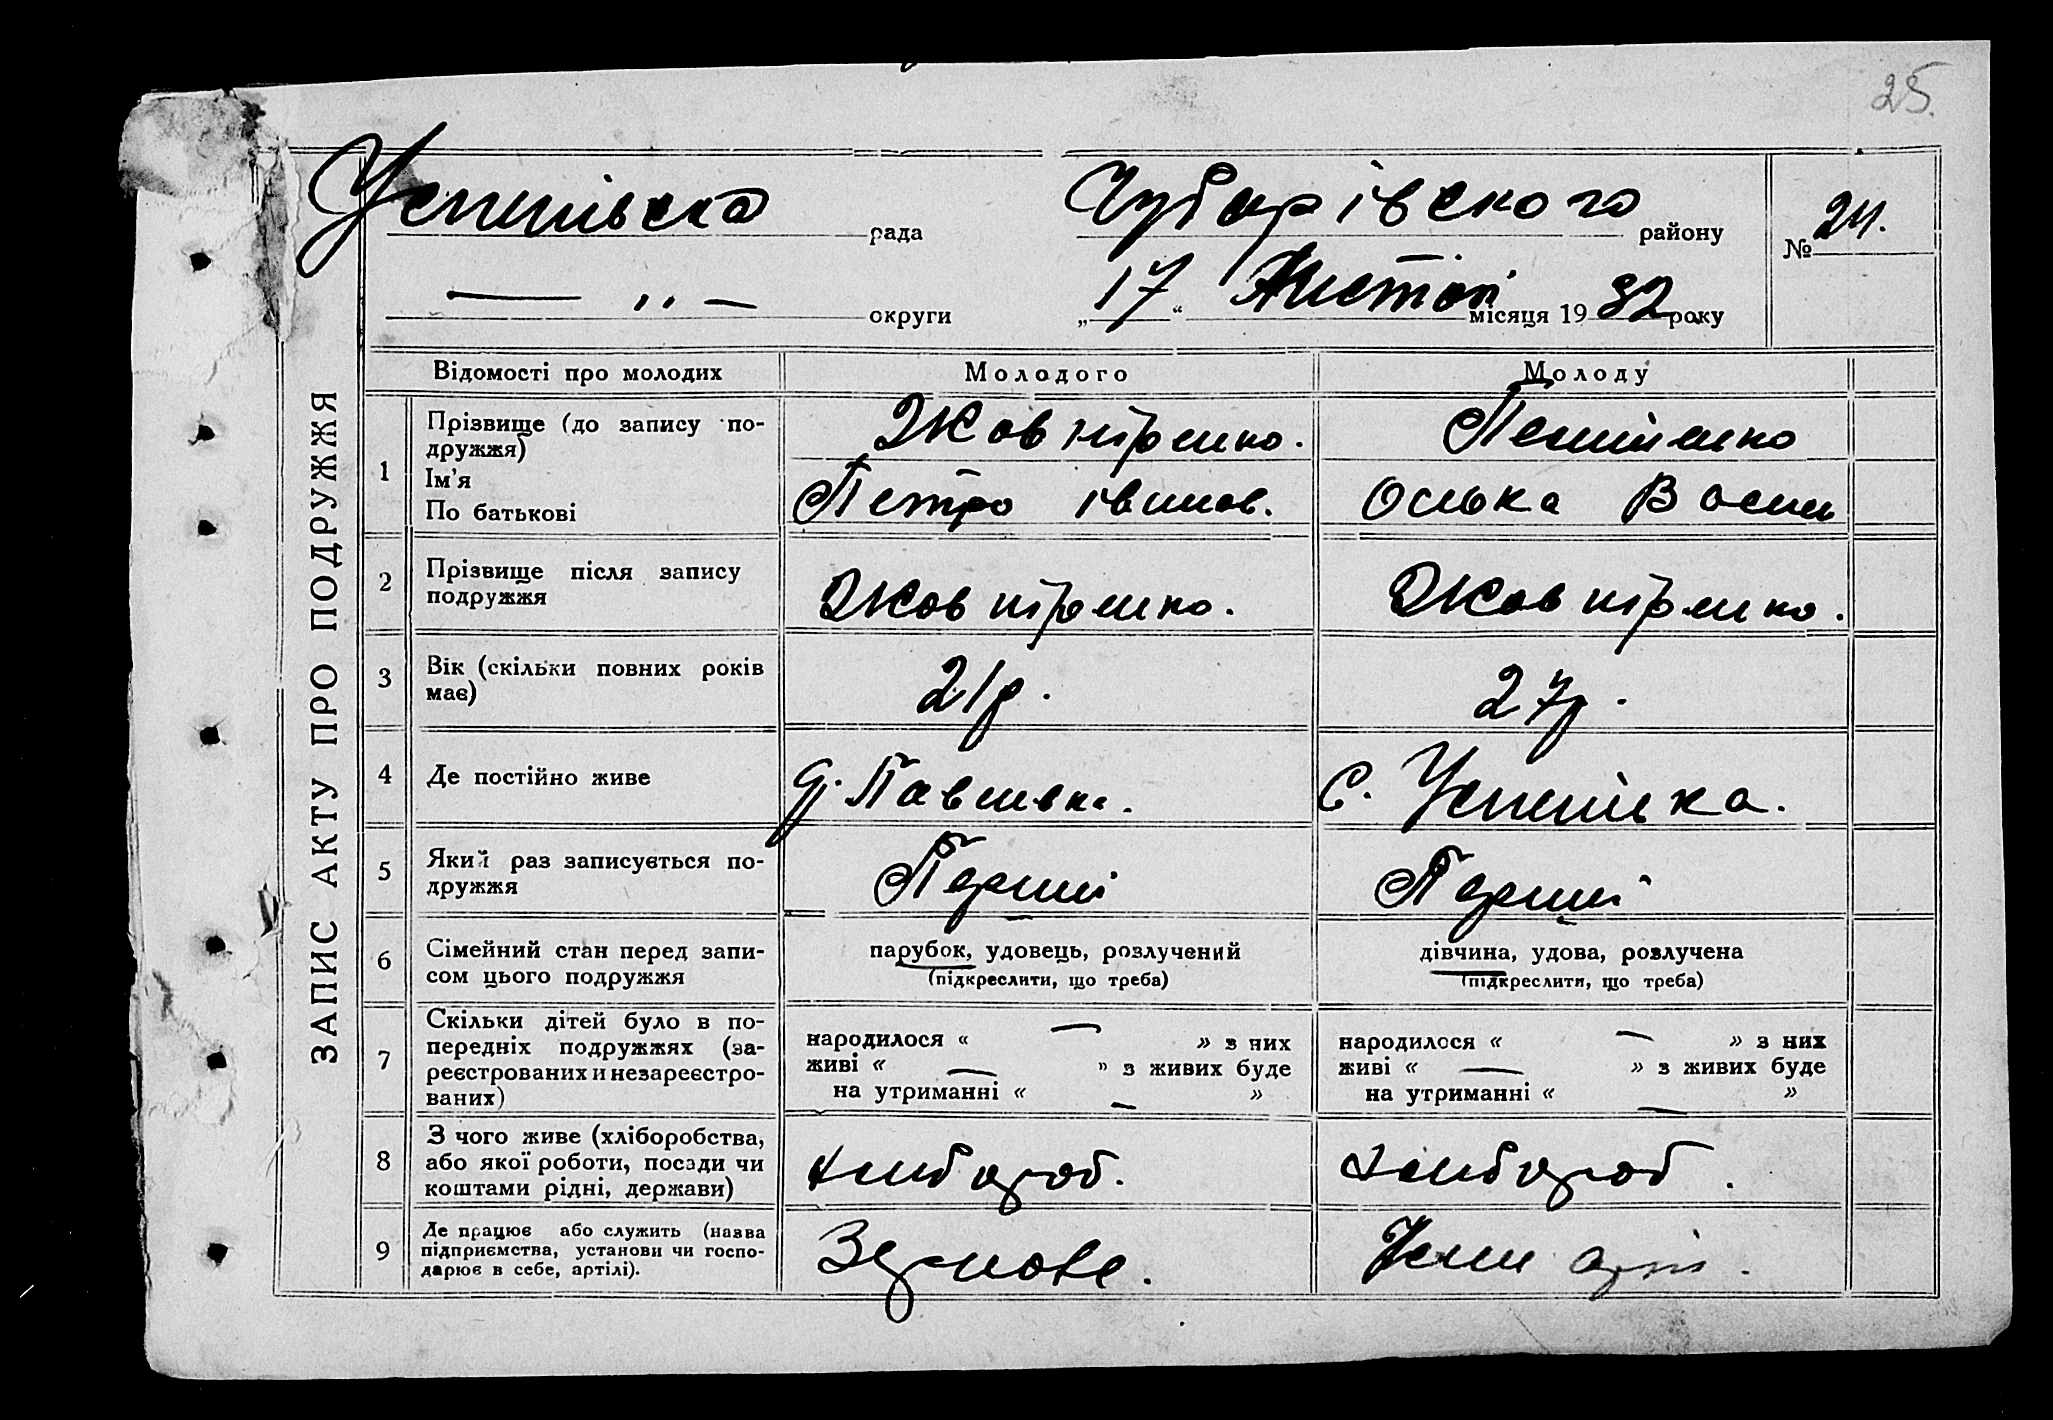 25.
Успенівська рада Чубарівського району № 24.
— „ — округи „17“ Листоп місяця 1932 року
ЗАПИС АКТУ ПРО ПОДРУЖЖЯ
Відомості про молодих Молодого Молоду
1 Прізвище (до запису по-
дружжя)
Ім'я
По батькові
Жовніренко.
Петро Іванов.
Василь
2 Прізвище після запису
подружжя
Жовніренко.
Жовніренко.
3 Вік (скільки повних років
має)
21р.
27р.
4 Де постійно живе
Павлівка.
с. Успенівка.
5 Який раз записується по-
дружжя
Перший
Перший
6 Сімейний стан перед запи-
сом цього подружжя
парубок, удовець, розлучений
(підкреслити, що треба)
дівчина, удова, розлучена
(підкреслити, що треба)
7 Скільки дітей було в по-
передніх подружжях (за-
реєстрованих и незареєстро-
ваних)
народилося « — » з них
живі « — » з живих буде
на утриманні « — »
народилося « — » з них
живі « — » з живих буде
на утриманні « — »
8 З чого живе (хліборобства,
або якої роботи, посади чи
коштами рідні, держави)
хлібороб.
хлібороб.
9 Де працює або служить (назва
підприємства, установи чи госпо-
дарює в себе, артілі).